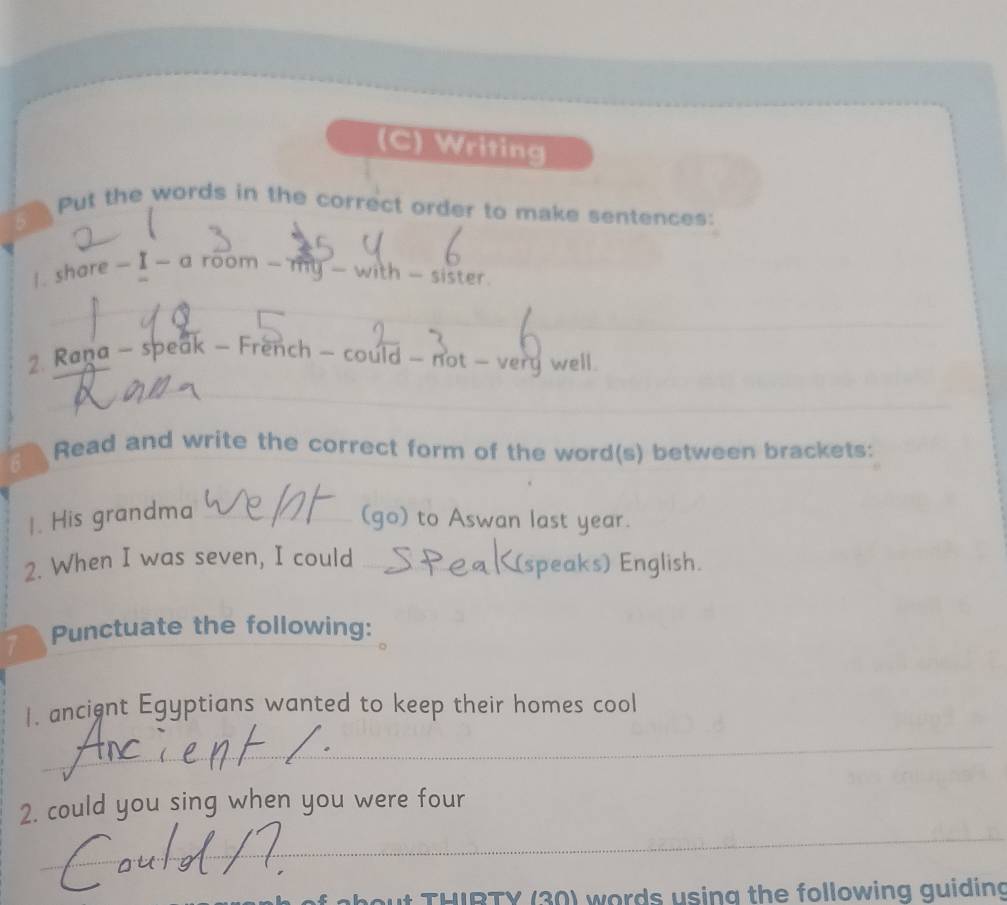 (C) Writing
5 Put the words in the correct order to make sentences:
2 1 3 5 4 6
1. share - I - a room - my - with - sister.
1 4 5 2 3 6
2. Rana - speak - French - could - not - very well.
Rana
6 Read and write the correct form of the word(s) between brackets:
1. His grandma went (go) to Aswan last year.
2. When I was seven, I could speak (speaks) English.
7 Punctuate the following:
1. ancient Egyptians wanted to keep their homes cool
Ancient / .
2. could you sing when you were four
Could / ?
of about THIRTY (30) words using the following guiding